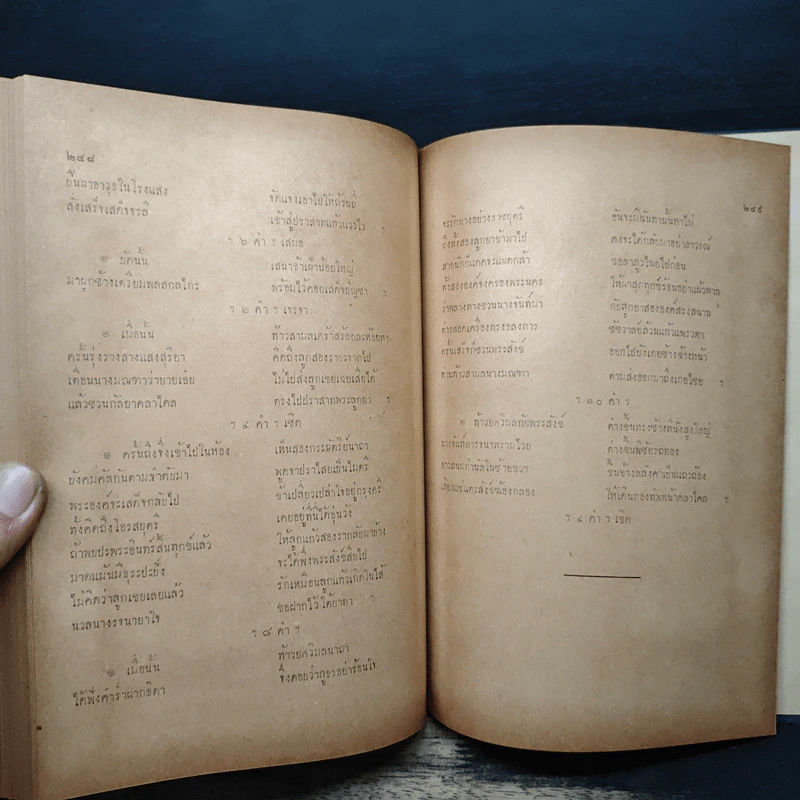 ๒๔๘
ยืนผาอาวุธในโรงแสง จัดแจงเอาไปให้ถ้วนถี่
สั่งเสร็จเสด็จจรลี เข้าสู่ปราสาทแก้วแววไว ฯ
ฯ ๖ คำ ฯ เสมอ
๏ บัดนั้น เสนาข้าเฝ้าน้อยใหญ่
มาผูกช้างเตรียมพลสกลไกร พร้อมไว้คอยเสด็จบัญชา ฯ
ฯ ๒ คำ ฯ เจรจา
๏ เมื่อนั้น ท้าวสามลเศร้าสร้อยละห้อยหา
ครั้นรุ่งรางสางแสงสุริยา คิดถึงลูกสองราจะจากไป
เตือนนางมณฑาว่ายายเอ๋ย ไม่ไปส่งลูกเขยเฉยเสียได้
แล้วชวนกัลยาคลาไคล ตรงไปปราสาทพระลูกยา ฯ
ฯ ๔ คำ ฯ เชิด
๏ ครั้นถึงจึ่งเข้าไปในห้อง เห็นสองกระษัตริย์นาถา
ยังคมคัลกันตามจำดัยมา พูดจาปราไสยเป็นไมตรี
พระองค์จะเสด็จกลัยไป ข้าเปลี่ยวเปล่าใจอยู่กรุงศรี
ทั้งคิดถึงโอรสบุตรี เคยอยู่ที่นี่ได้อุ่นวัง
ถ้าพบปะพระอินทร์สิ้นทุกข์แล้ว ให้ลูกแก้วสองรากลับมาข้าง
มาดแม้นมีธุระปะยั้ง จะได้พึ่งพระสังข์สืบไป
ไม่คิดว่าลูกเขยเลยแล้ว รักเหมือนลูกแก้วเกิดในไส้
นวลนางรจนายาใจ ขอฝากไว้ใต้บาทา ฯ
ฯ ๘ คำ ฯ
๏ เมื่อนั้น ท้าวยศวิมลนาถา
ได้ฟังคำร่ำฝากธิดา จึ่งตอบว่าภูธรอย่าร้อนใจ
๒๔๙
จะรักนางอย่างราชบุตรี อันจะมีฉันทานั้นหาไม่
ถึงทั้งสองลูกยาข้าพาไป คงจะได้กลับมาอย่าอาวรณ์
สายนักก็แดดจะแผดกล้า ขอลาภูวไนยไปก่อน
ทั้งสององค์จงครองพระนคร ให้ผาสุกทุกข์ร้อนอย่าแผ้วพาล
ว่าพลางทางชวนนางจันท์มา กับลูกยาสององค์สะสนาน
ต่างสอดเครื่องทรงอลงการ ชัชวาลย์ล้วนแก้วแพรวตา
ครั้นเสร็จก็ชวนพระสังข์ ออกไปยังเกยช้างข้างหน้า
ท่านท้าวสามลนางมณฑา ตามส่งออกมาถึงเกยไชย ฯ
ฯ ๑๐ คำ ฯ
๏ ท้าวยศวิมลกับพระสังข์ ต่างขึ้นทรงช้างที่นั่งสูงใหญ่
นางจันท์พารจนาทรามไวย ต่างขึ้นพิชัยรถทอง
สาวสนมกำนัลในซ้ายขวา ขึ้นช้างหลังคาเป็นแถวถ้อง
เสียงแซ่แตรสังข์ฆ้องกลอง ให้เดินกองทัพหน้าคลาไคล ฯ
ฯ ๔ คำ ฯ เชิด